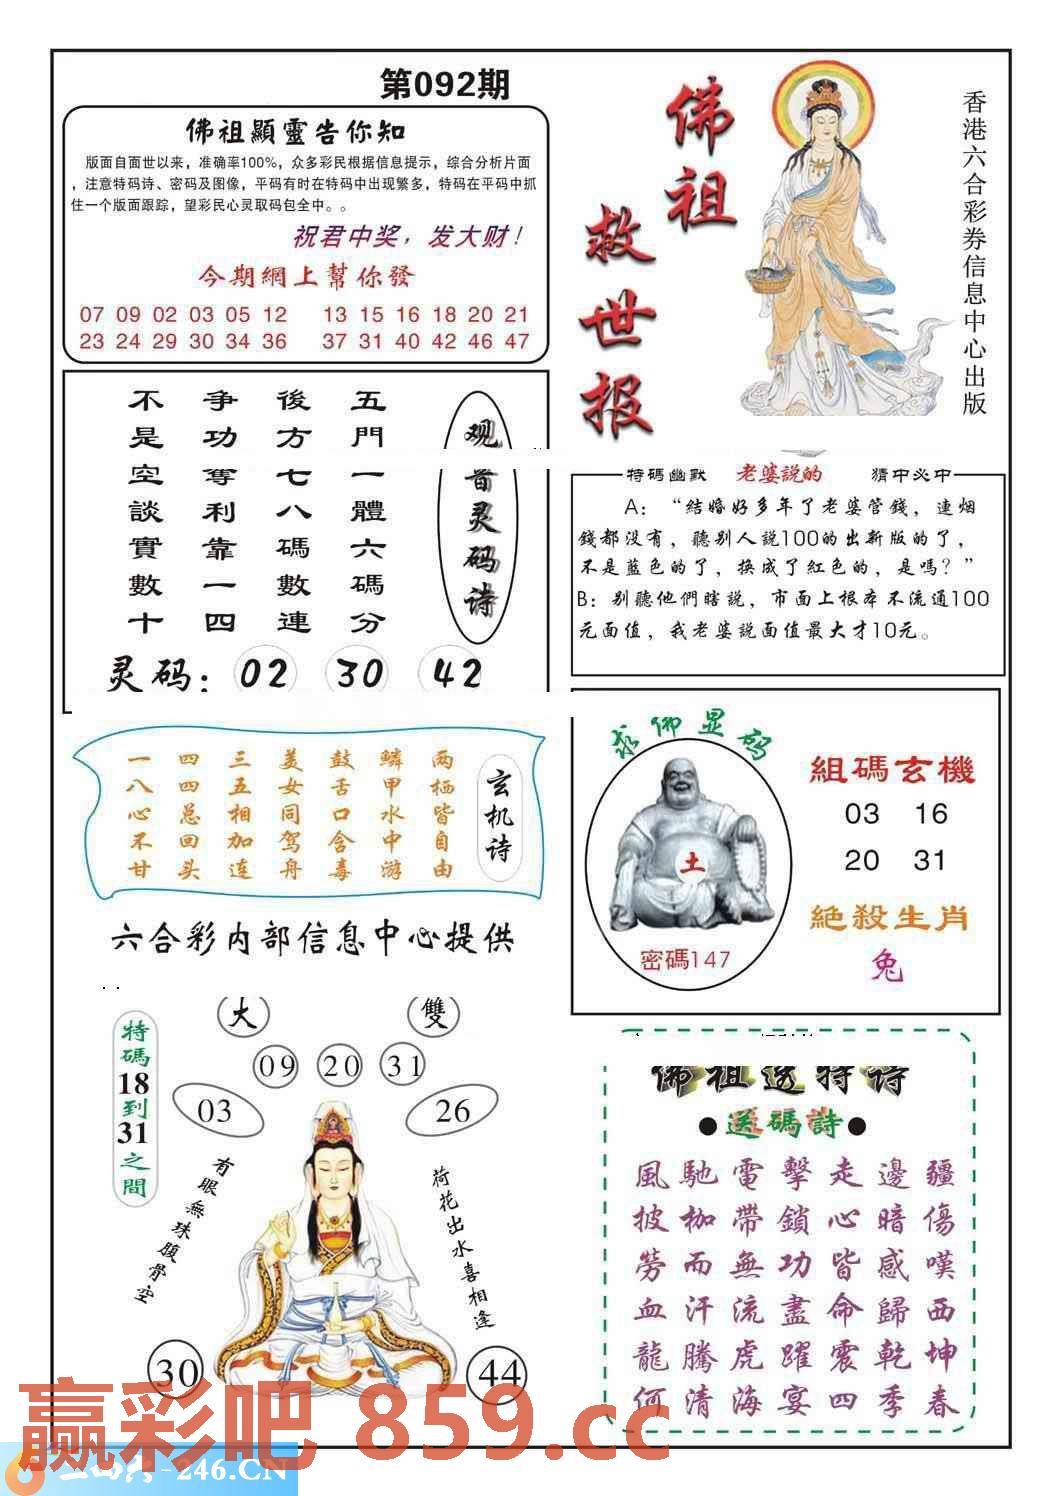 第092期
佛祖顯靈告你知
版面自面世以来，准确率100%，众多彩民根据信息提示，综合分析片面
，注意特码诗、密码及图像，平码有时在特码中出现繁多，特码在平码中抓
住一个版面跟踪，望彩民心灵取码包全中。。
祝君中奖，发大财！
今期網上幫你發
07 09 02 03 05 12 13 15 16 18 20 21
23 24 29 30 34 36 37 31 40 42 46 47
佛祖救世报
香港六合彩券信息中心出版
观音灵码诗
五門一體六碼分
後方七八碼數連
争功奪利靠一四
不是空談實數十
灵码：02 30 42
特碼幽默 老婆説的 猜中必中
A：“結婚好多年了老婆管錢，連烟
錢都没有，聽别人説100的出新版的了，
不是藍色的了，换成了紅色的，是嗎？”
B：别聽他們瞎説，市面上根本不流通100
元面值，我老婆説面值最大才10元。
玄机诗
两栖皆自由
鳞甲水中游
鼓舌口含毒
美女同驾舟
三五相加连
四四总回头
一八心不甘
六合彩内部信息中心提供
求佛显码
土
密碼147
組碼玄機
03 16
20 31
絶殺生肖
兔
特碼18到31之間
大 雙
09 20 31
03 26
有眼無珠腹骨空
荷花出水喜相逢
30 44
佛祖送特诗
●送碼詩●
風馳電擊走邊疆
披枷帶鎖心暗傷
勞而無功皆感嘆
血汗流盡命歸西
龍騰虎躍震乾坤
何清海宴四季春
赢彩吧 859.cc
-246.CN